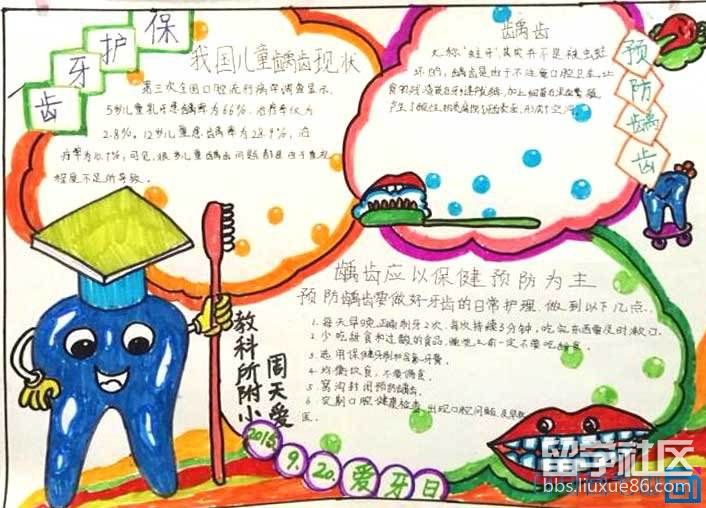 保
护
牙
齿
我国儿童龋齿现状
第三次全国口腔流行病学调查显示,
5岁儿童乳牙患龋率为66%,治疗率仅为
2.8%。12岁儿童患龋率为28.9%,治
疗率为10.7%,可见,很多儿童龋齿问题都是由于重视
程度不足所导致。
龋齿
又称“蛀牙”,其实并不是被虫蛀
坏的,龋齿是由于不注重口腔卫生,让
形成空洞。
预
防
龋
齿
龋齿应以保健预防为主
预防龋齿要做好牙齿的日常护理,做到以下几点.
1. 每天早晚正确刷牙2次,每次持续3分钟,吃完东西要及时漱口.
2. 少吃甜食和过酸的食品,睡觉之前一定不要吃甜食.
3. 选用保健牙刷和含氟牙膏.
4. 均衡饮食,不要偏食.
5. 窝沟封闭预防龋齿.
6. 定期口腔健康检查,出现口腔问题及早就
医.
教科所附小
周天爱
2015.
9.
20.
爱
牙
日
留学社区
bbs.liuxue86.com